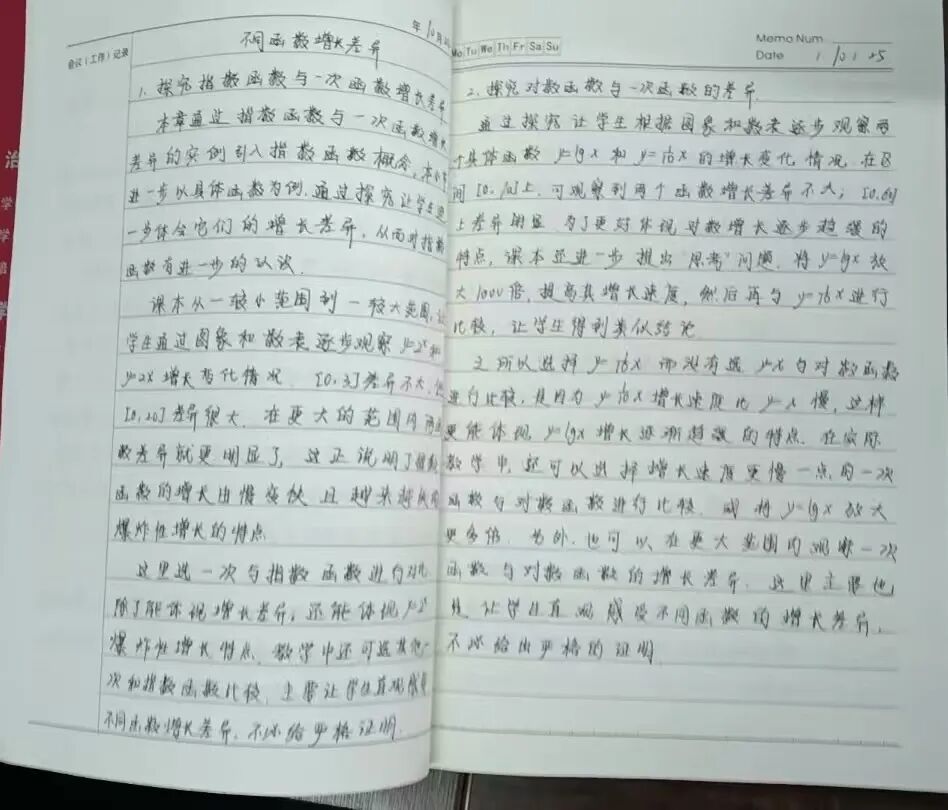 会议(工作)记录
年10月
不同函数增长差异
1. 探究指数函数与一次函数增长差异
本章通过指数函数与一次函数增长
差异的实例引入指数函数概念,本小节
进一步以具体函数为例,通过探究让学生进
一步体会它们的增长差异,从而对指数
函数有进一步的认识.
课本从一较小范围到一较大范围,让
学生通过图象和数表逐步观察y=2ˣ和
y=2x增长变化情况. [0,3]差异不大,但
[0,20]差异很大.在更大的范围内两函
数差异就更明显了,这正说明了指数
函数的增长由慢变快且越来越快有
爆炸性增长的特点
这里选一次与指数函数进行对比
除了能体现增长差异,还能体现y=2ˣ
爆炸性增长特点.教学中还可选其他一
次和指数函数比较,主要让学生直观感受
不同函数增长差异,不必给严格证明.
Mo Tu We Th Fr Sa Su
Memo Num
Date 1 /01 25
2. 探究对数函数与一次函数的差异.
通过探究让学生根据图象和数表逐步观察两
个具体函数 y=lgx 和 y=1/10x 的增长变化情况.在区
间[0,10]上,可观察到两个函数增长差异不大; [0,60]
上差异明显.为了更好体现对数增长逐步趋缓的
特点,课本还进一步提出"思考"问题,将y=lgx放
大1000倍,提高其增长速度,然后再与y=1/10x进行
比较,让学生得到类似结论
之所以选择 y=1/10x 而没有选 y=x 与对数函数
进行比较,是因为 y=1/10x 增长速度比 y=x 慢,这样
更能体现 y=lgx 增长逐渐趋缓的特点.在实际
教学中,还可以选择增长速度更慢一点的一次
函数与对数函数进行比较,或将 y=lgx 放大
更多倍.另外,也可以在更大范围内观察一次
函数与对数函数的增长差异.这里主要也
是让学生直观感受不同函数的增长差异,
不必给出严格的证明.
治
学
学